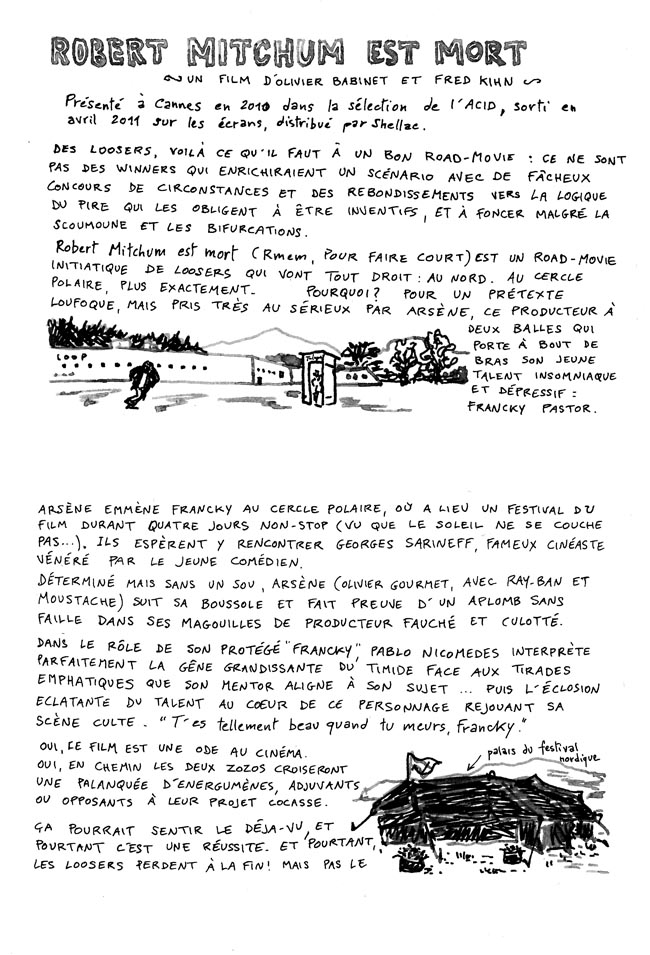 ROBERT MITCHUM EST MORT
UN FILM D'OLIVIER BABINET ET FRED KIHN
Présenté à Cannes en 2010 dans la sélection de l'ACID, sorti en
avril 2011 sur les écrans, distribué par Shellac.
DES LOOSERS, VOILÀ CE QU'IL FAUT À UN BON ROAD-MOVIE : CE NE SONT
PAS DES WINNERS QUI ENRICHIRAIENT UN SCÉNARIO AVEC DE FÂCHEUX
CONCOURS DE CIRCONSTANCES ET DES REBONDISSEMENTS VERS LA LOGIQUE
DU PIRE QUI LES OBLIGENT À ÊTRE INVENTIFS, ET À FONCER MALGRÉ LA
SCOUMOUNE ET LES BIFURCATIONS.
Robert Mitchum est mort (Rmem, POUR FAIRE COURT) EST UN ROAD-MOVIE
INITIATIQUE DE LOOSERS QUI VONT TOUT DROIT : AU NORD. AU CERCLE
POLAIRE, PLUS EXACTEMENT. POURQUOI? POUR UN PRÉTEXTE
LOUFOQUE, MAIS PRIS TRÈS AU SÉRIEUX PAR ARSÈNE, CE PRODUCTEUR À
DEUX BALLES QUI
PORTE À BOUT DE
BRAS SON JEUNE
TALENT INSOMNIAQUE
ET DÉPRESSIF :
FRANCKY PASTOR.
LOOP
ARSÈNE EMMÈNE FRANCKY AU CERCLE POLAIRE, OÙ A LIEU UN FESTIVAL DU
FILM DURANT QUATRE JOURS NON-STOP (VU QUE LE SOLEIL NE SE COUCHE
PAS...). ILS ESPÈRENT Y RENCONTRER GEORGES SARINEFF, FAMEUX CINÉASTE
VÉNÉRÉ PAR LE JEUNE COMÉDIEN.
DÉTERMINÉ MAIS SANS UN SOU, ARSÈNE (OLIVIER GOURMET, AVEC RAY-BAN ET
MOUSTACHE) SUIT SA BOUSSOLE ET FAIT PREUVE D'UN APLOMB SANS
FAILLE DANS SES MAGOUILLES DE PRODUCTEUR FAUCHÉ ET CULOTTÉ.
DANS LE RÔLE DE SON PROTÉGÉ "FRANCKY", PABLO NICOMEDES INTERPRÈTE
PARFAITEMENT LA GÊNE GRANDISSANTE DU TIMIDE FACE AUX TIRADES
EMPHATIQUES QUE SON MENTOR ALIGNE À SON SUJET ... PUIS L'ÉCLOSION
ECLATANTE DU TALENT AU COEUR DE CE PERSONNAGE REJOUANT SA
SCÈNE CULTE. "T'es tellement beau quand tu meurs, Francky."
OUI, CE FILM EST UNE ODE AU CINÉMA.
OUI, EN CHEMIN LES DEUX ZOZOS CROISERONT
UNE PALANQUÉE D'ENERGUMÈNES, ADJUVANTS
OU OPPOSANTS À LEUR PROJET COCASSE.
palais du festival
nordique
ÇA POURRAIT SENTIR LE DÉJA-VU, ET
POURTANT C'EST UNE RÉUSSITE. ET POURTANT,
LES LOOSERS PERDENT À LA FIN! MAIS PAS LE